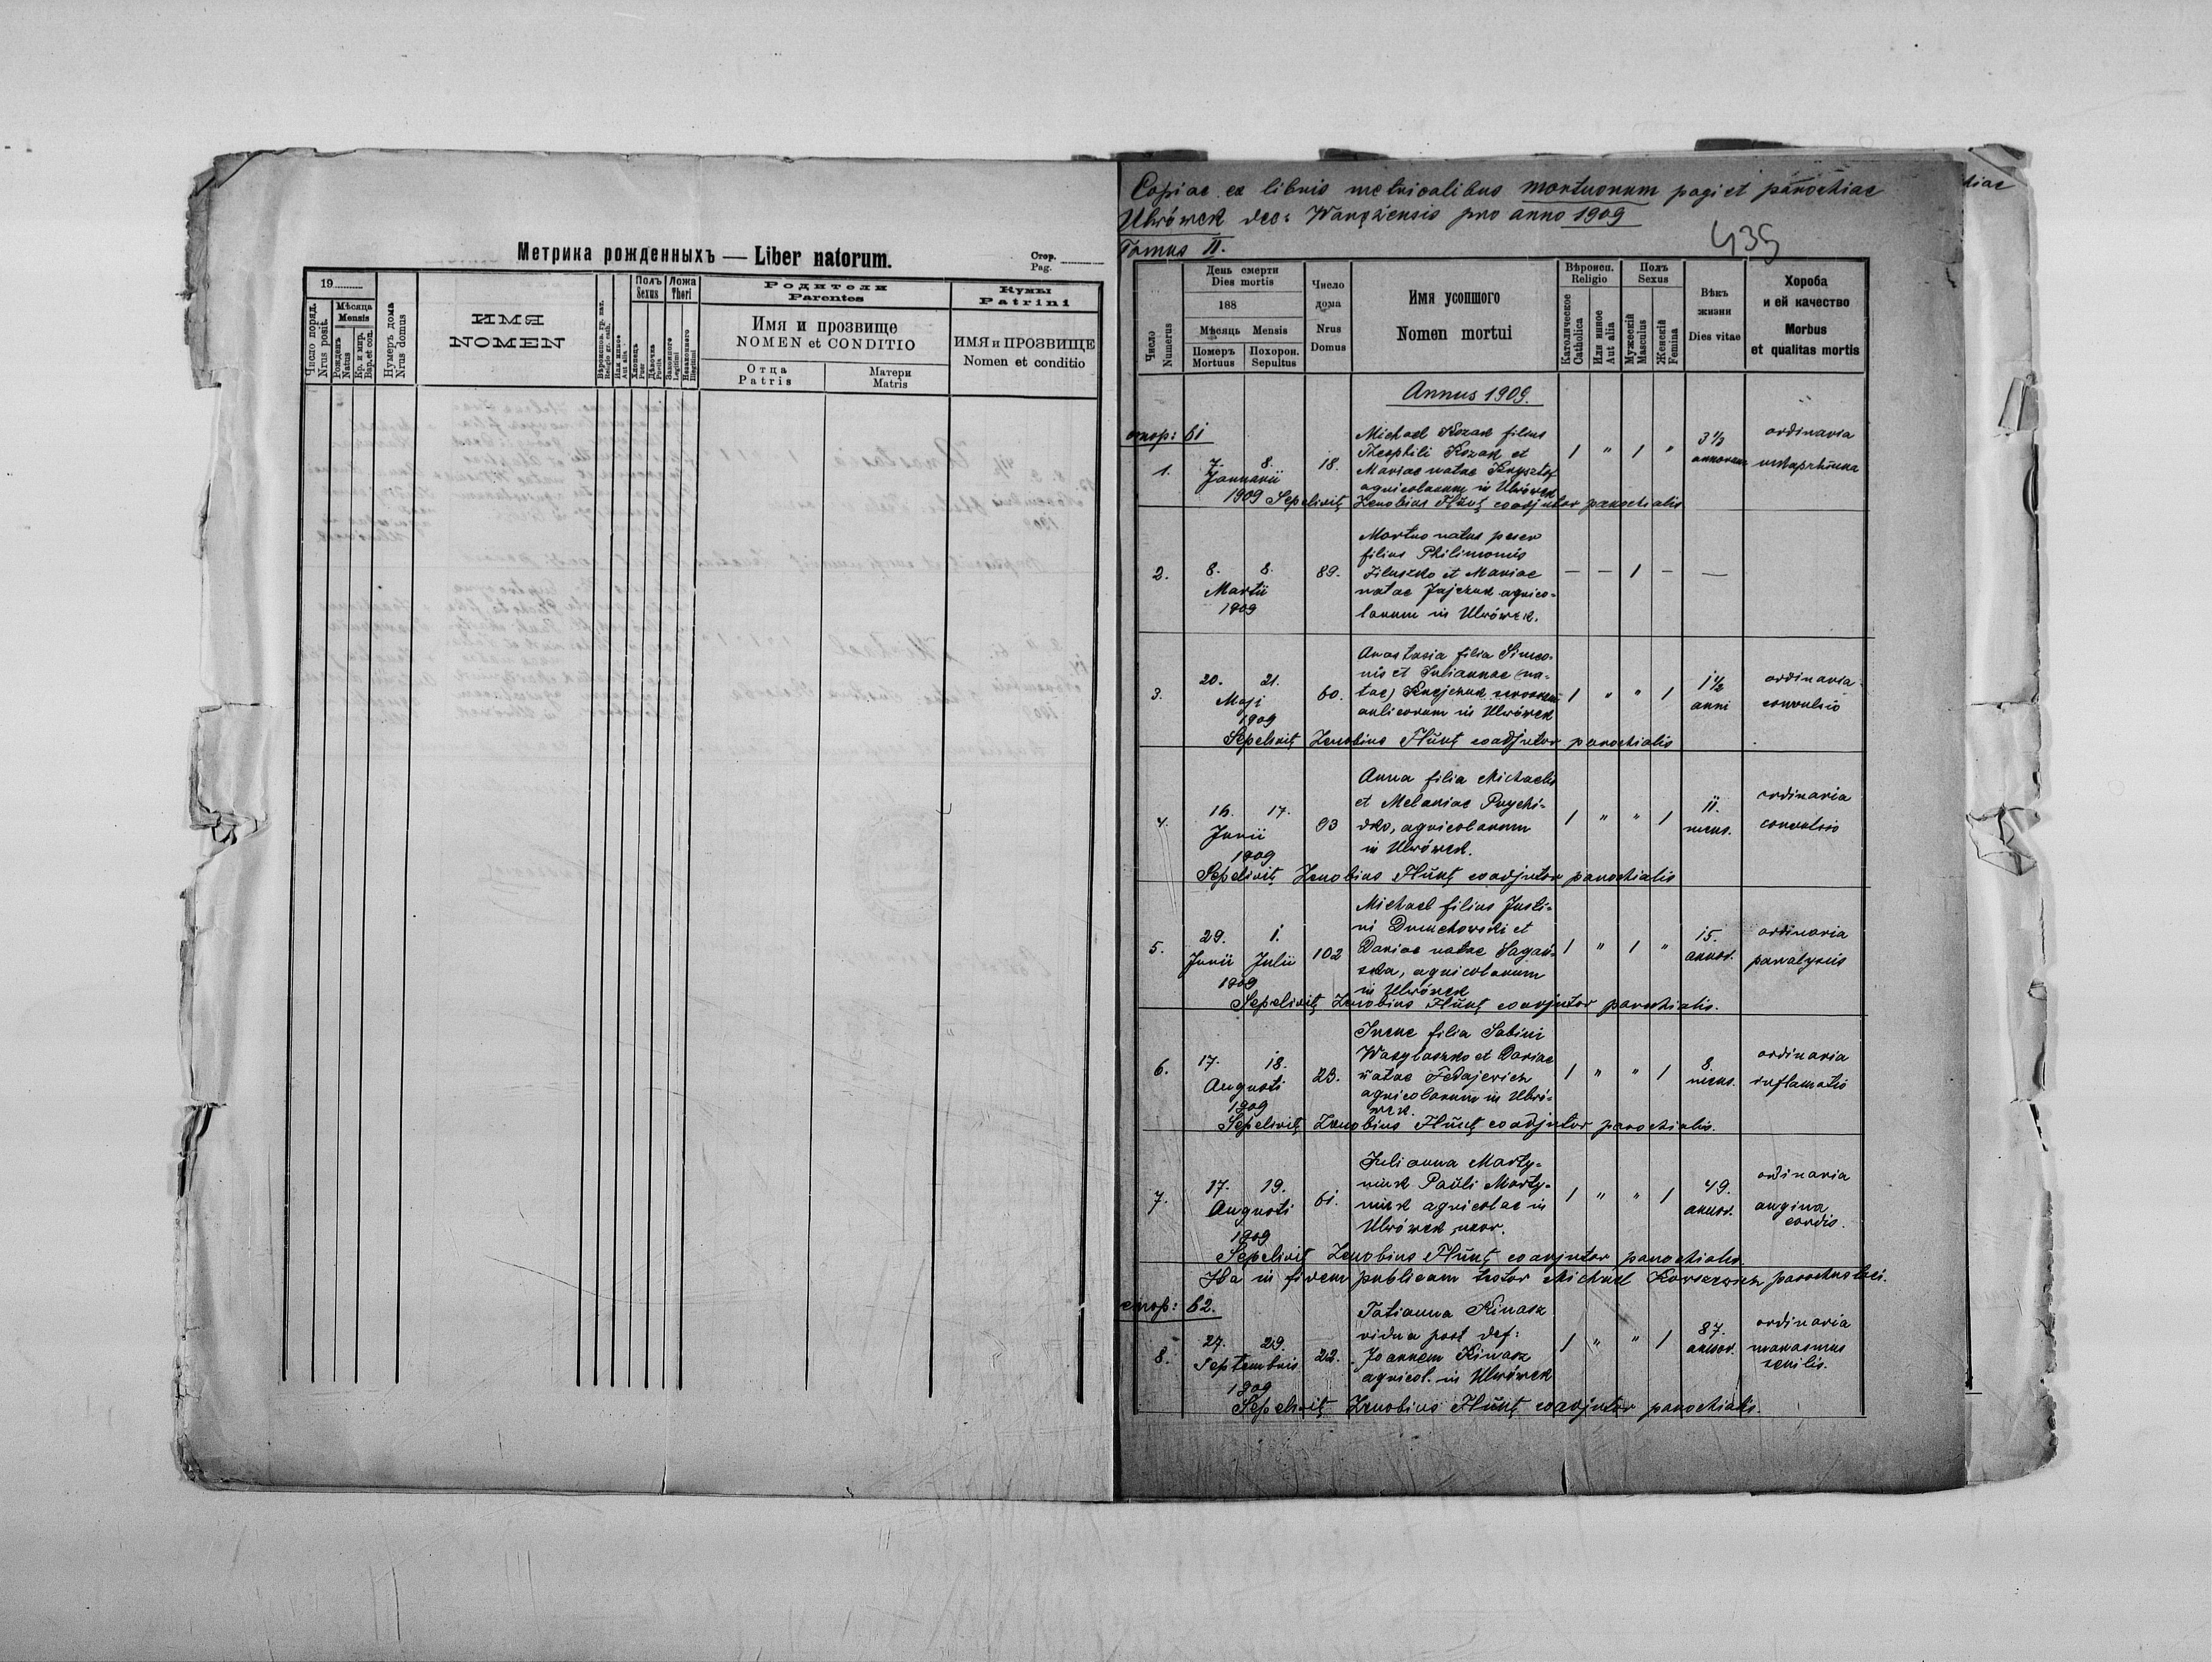 Метрика рожденныхъ — Liber natorum.
Стор.
Pag.
19
Число поряд.
Nrus posit.
Мѣсяца
Mensis
Рожденъ
Natus
Кр. и мир.
Bap. et con.
Нумеръ дома
Nrus domus
ИМЯ
NOMEN
Религіо gr. cath.
Или инное
Aut alia
Полъ
Sexus
Хлопець
Puer
Дѣвочка
Puella
Ложа
Thori
Законного
Legitimi
Незаконного
Illegitimi
Родители
Parentes
Имя и прозвище
NOMEN et CONDITIO
Отца
Patris
Матери
Matris
Кумы
Patrini
ИМЯ и ПРОЗВИЩЕ
Nomen et conditio
Copiae ex libris metricalibus mortuorum pagi et parochiae
Uhrówek dec: Waręžensis pro anno 1909
435
Tomus II.
Число
Numerus
День смерти
Dies mortis
188
Мѣсяць Mensis
Померъ
Mortuus
Похорон.
Sepultus
Число
дома
Nrus
Domus
Имя усопшого
Nomen mortui
Вѣроисп.
Religio
Католическое
Catholica
Или инное
Aut alia
Полъ
Sexus
Мужескій
Masculus
Женскій
Femina
Вѣкъ
жизни
Dies vitae
Хороба
и ей качество
Morbus
et qualitas mortis
Annus 1909.
стор: 61
1. 7. 8. Januarii 1909 18.
Michael Kozak filius
Theophili Kozak et
Mariae natae Krysztof
agricolarum in Uhrówek
1 " 1 " 3 1/2 annorum ordinaria
Sepelivit Zenobius Flunt coadjutor parochialis
2. 8. 8. Martii 1909 89.
Mortuo natus puer
filius Philimonis
Filuszko et Mariae
natae Jajczuk agrico-
larum in Uhrówek.
— — 1 — —
3. 20. 21. Maji 1909 60.
Anastasia filia Simeo-
nis et Juliannae (na-
tae)
aulicorum in Uhrówek
1 " " 1 1 1/2 anni ordinaria convulsio
Sepelivit Zenobius Flunt coadjutor parochialis
4. 16. 17. Junii 1909 93
Anna filia Michaelis
et Melaniae Prychi-
dko, agricolarum
in Uhrówek.
1 " " 1 11. mens. ordinaria convulsio
Sepelivit Zenobius Flunt coadjutor parochialis
5. 29. Junii 1. Julii 1909 102
Michael filius Justi-
ni Dmuchowski et
Dariae natae Sagań-
ska, agricolarum
in Uhrówek
1 " 1 " 15. annor. ordinaria paralysis
Sepelivit Zenobius Flunt coadjutor parochialis.
6. 17. 18. Augusti 1909 23.
Irene filia Sabini
Wasylaszko et Dariae
natae Fedajewicz
agricolarum in Uhró-
wek.
1 " " 1 8. mens. ordinaria inflamatio
Sepelivit Zenobius Flunt coadjutor parochialis.
7. 17. 19. Augusti 1909 61.
Julianna Marty-
niuk Pauli Marty-
niuk agricolae in
Uhrówek uxor.
1 " " 1 49. annor. ordinaria angina cordis.
Sepelivit Zenobius Flunt coadjutor parochialis.
Ita in fidem publicam testor Michael Korsewicz parochus loci.
стор: 62.
8. 27. 29. Septembris 1909 22.
Tatianna Kinasz
vidua post def:
Joannem Kinasz
agricol. in Uhrówek
1 " " 1 87. annor. ordinaria marasmus senilis.
Sepelivit Zenobius Flunt coadjutor parochialis.